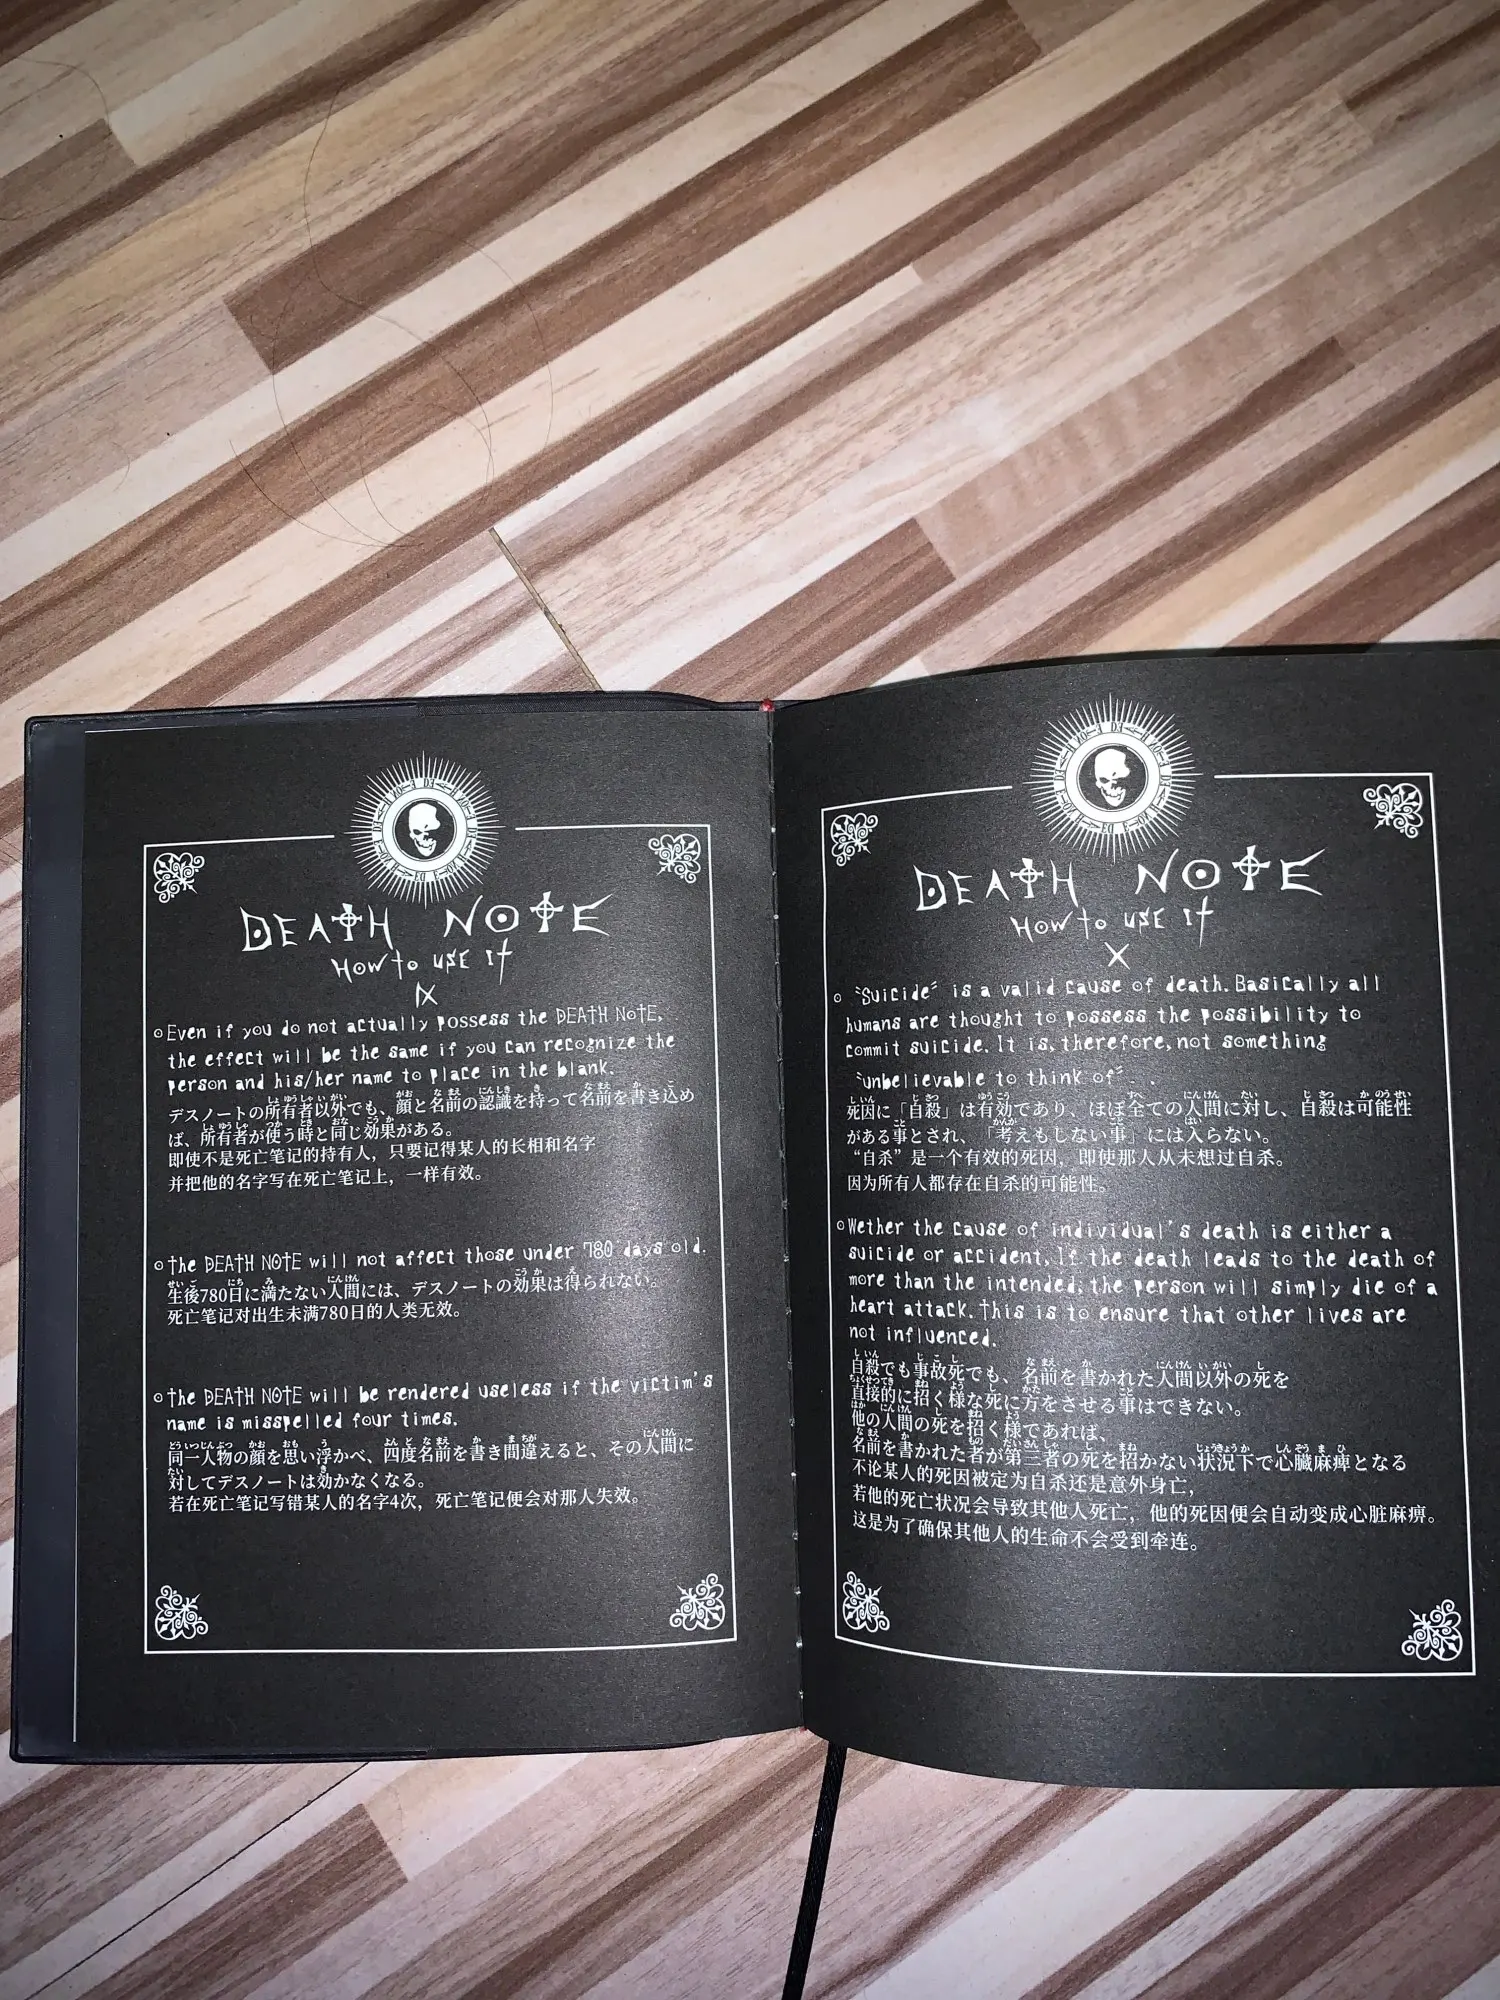 DEATH NOTE
How to use it
IX
Even if you do not actually possess the DEATH NOTE,
the effect will be the same if you can recognize the
person and his/her name to place in the blank.
デスノートの所有者以外でも、顔と名前の認識を持って名前を書き込め
ば、所有者が使う時と同じ効果がある。
即使不是死亡笔记的持有人，只要记得某人的长相和名字
并把他的名字写在死亡笔记上，一样有效。
the DEATH NOTE will not affect those under 780 days old.
生後780日に満たない人間には、デスノートの効果は得られない。
死亡笔记对出生未满780日的人类无效。
the DEATH NOTE will be rendered useless if the victim's
name is misspelled four times.
同一人物の顔を思い浮かべ、四度名前を書き間違えると、その人間に
対してデスノートは効かなくなる。
若在死亡笔记写错某人的名字4次，死亡笔记便会对那人失效。
DEATH NOTE
How to use it
X
"Suicide" is a valid cause of death. Basically all
humans are thought to possess the possibility to
commit suicide. It is, therefore, not something
"unbelievable to think of".
死因に「自殺」は有効であり、ほぼ全ての人間に対し、自殺は可能性
がある事とされ、「考えもしない事」には入らない。
“自杀”是一个有效的死因，即使那人从未想过自杀。
因为所有人都存在自杀的可能性。
Wether the cause of individual's death is either a
suicide or accident, If the death leads to the death of
more than the intended; the person will simply die of a
heart attack. This is to ensure that other lives are
not influenced.
自殺でも事故死でも、名前を書かれた人間以外の死を
直接的に招く様な死に方をさせる事はできない。
他の人間の死を招く様であれば、
名前を書かれた者が第三者の死を招かない状況下で心臓麻痺となる
不论某人的死因被定为自杀还是意外身亡，
若他的死亡状况会导致其他人死亡，他的死因便会自动变成心脏麻痹。
这是为了确保其他人的生命不会受到牵连。